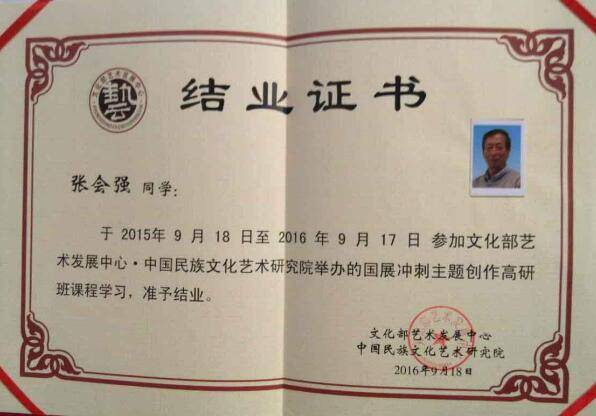 结业证书
张会强 同学：
于 2015年 9 月 18 日至 2016 年 9 月 17 日 参加文化部艺
术发展中心·中国民族文化艺术研究院举办的国展冲刺主题创作高研
班课程学习，准予结业。
文化部艺术发展中心
中国民族文化艺术研究院
2016年9月18日